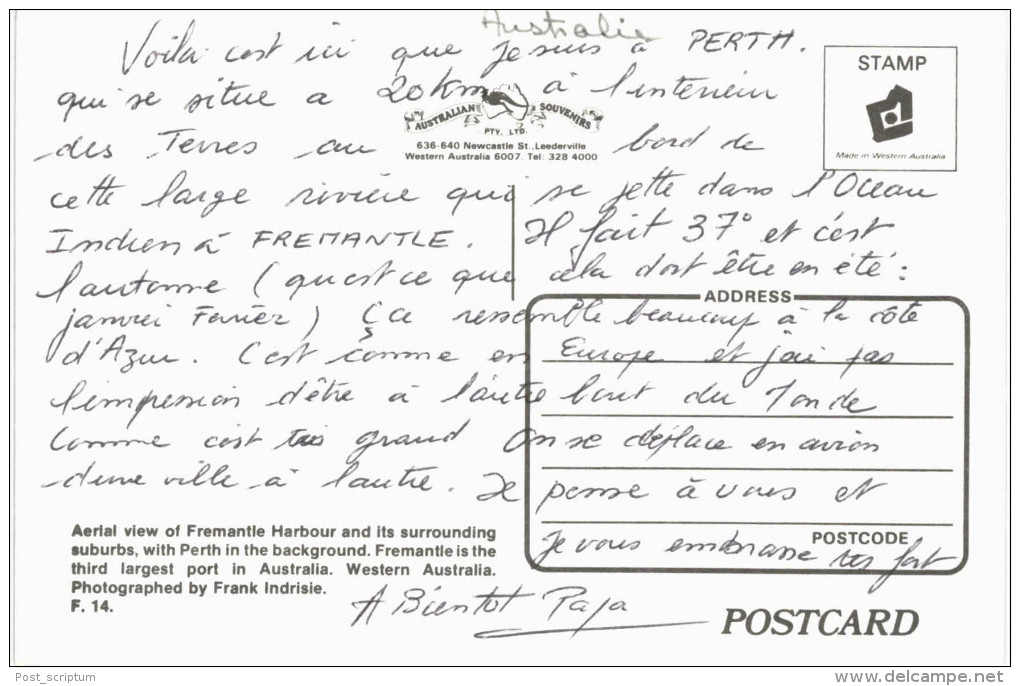 Australie
Voila c'est ici que je suis à PERTH.
STAMP
qui se situe a 20 km à l'interieur
AUSTRALIAN SOUVENIRS
PTY. LTD.
636-640 Newcastle St., Leederville
Western Australia 6007. Tel: 328 4000
Made in Western Australia
des Terres au bord de
cette large rivière qui se jette dans l'Ocean
Indien à FREMANTLE. Il fait 37° et c'est
l'automne (qu'est ce que cela doit être en été:
ADDRESS
janvier Fevrier) Ça ressemble beaucoup à la côte
d'Azur. C'est comme en Europe et j'ai pas
l'impression d'être à l'autre bout du Monde
Comme c'est très grand On se déplace en avion
d'une ville à l'autre. Je pense à vous et
je vous embrasse très fort
POSTCODE
Aerial view of Fremantle Harbour and its surrounding
suburbs, with Perth in the background. Fremantle is the
third largest port in Australia. Western Australia.
Photographed by Frank Indrisie.
F. 14.
A Bientot Papa
POSTCARD
Post_scriptum
www.delcampe.net